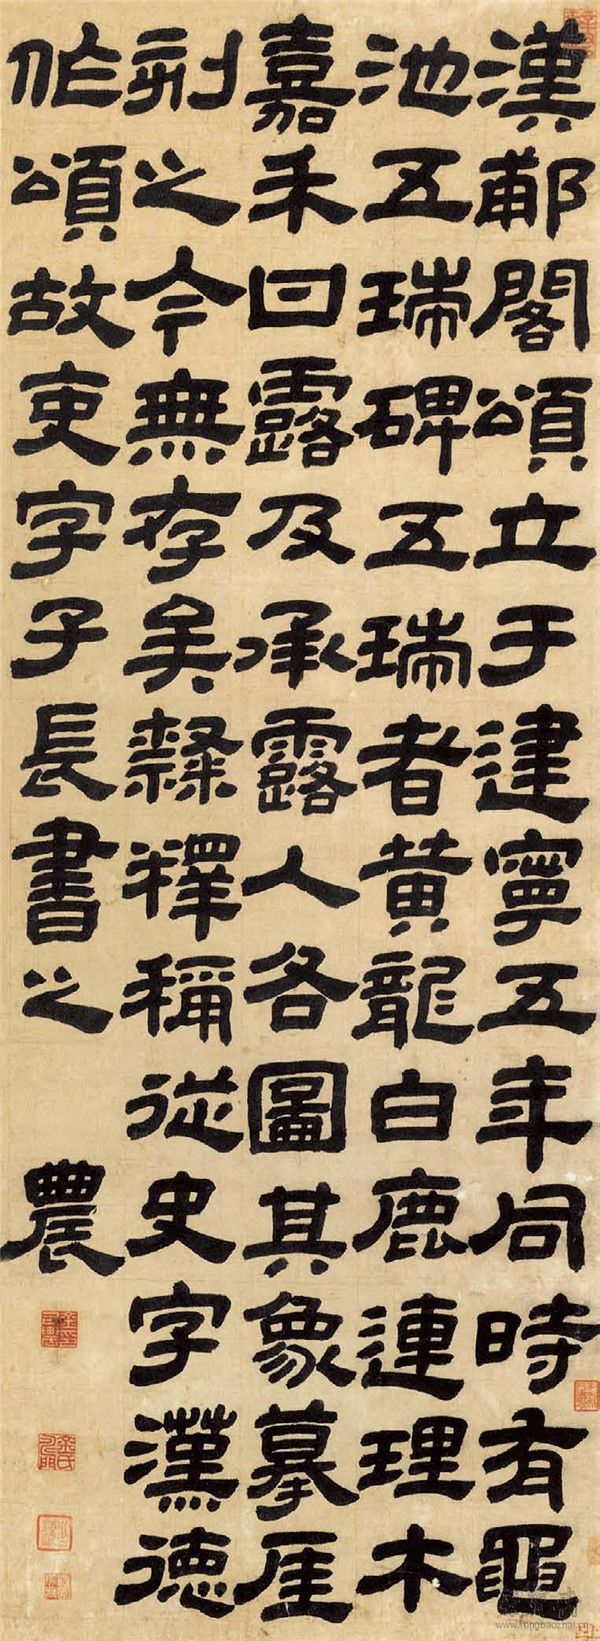 漢郙閣頌立于建寧五年同時有黽
池五瑞碑五瑞者黄龍白鹿連理木
嘉禾甘露及承露人各圖其象摹厓
刻之今無存矣隸釋稱從史字漢德
作頌故吏字子長書之 農
www.rongbaozhai.cn